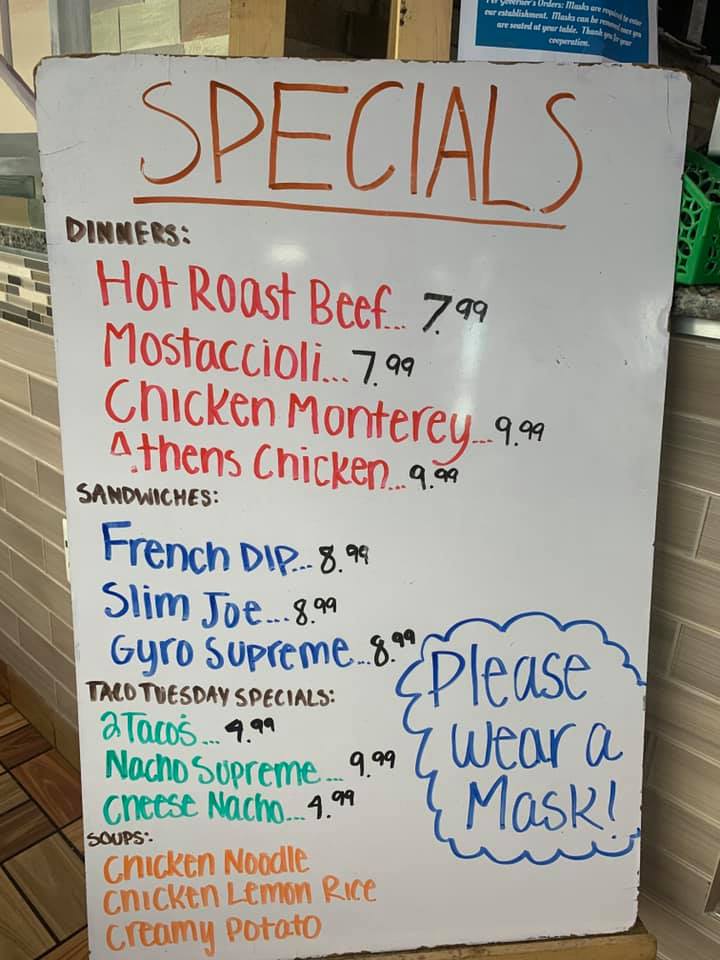 Per Governor's Orders: Masks are required to enter
our establishment. Masks can be removed once you
are seated at your table. Thank you for your
cooperation.
SPECIALS
DINNERS:
Hot Roast Beef... 7.99
Mostaccioli... 7.99
Chicken Monterey... 9.99
Athens Chicken... 9.99
SANDWICHES:
French DIP... 8.99
Slim Joe.... 8.99
Gyro Supreme... 8.99
TACO TUESDAY SPECIALS:
2 Taco's... 4.99
Nacho Supreme... 9.99
Cheese Nacho... 4.99
SOUPS:
Chicken Noodle
Chicken Lemon Rice
Creamy Potato
Please
wear a
Mask!